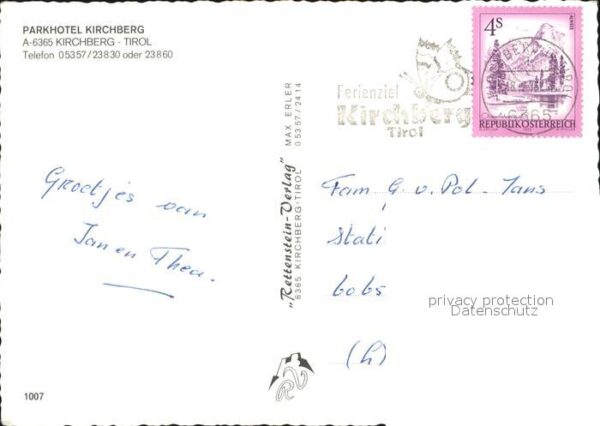 PARKHOTEL KIRCHBERG
A-6365 KIRCHBERG - TIROL
Telefon 05357/23830 oder 23860
Groetjes van
Jan en Thea.
1007
"Rettenstein-Verlag"
6365 KIRCHBERG-TIROL
MAX ERLER
05357/2414
Ferienziel
Kirchberg
Tirol
4S
REPUBLIK ÖSTERREICH
6365
Fam G. v. Pol-Jans
Stati
6065
(h)
privacy protection
Datenschutz